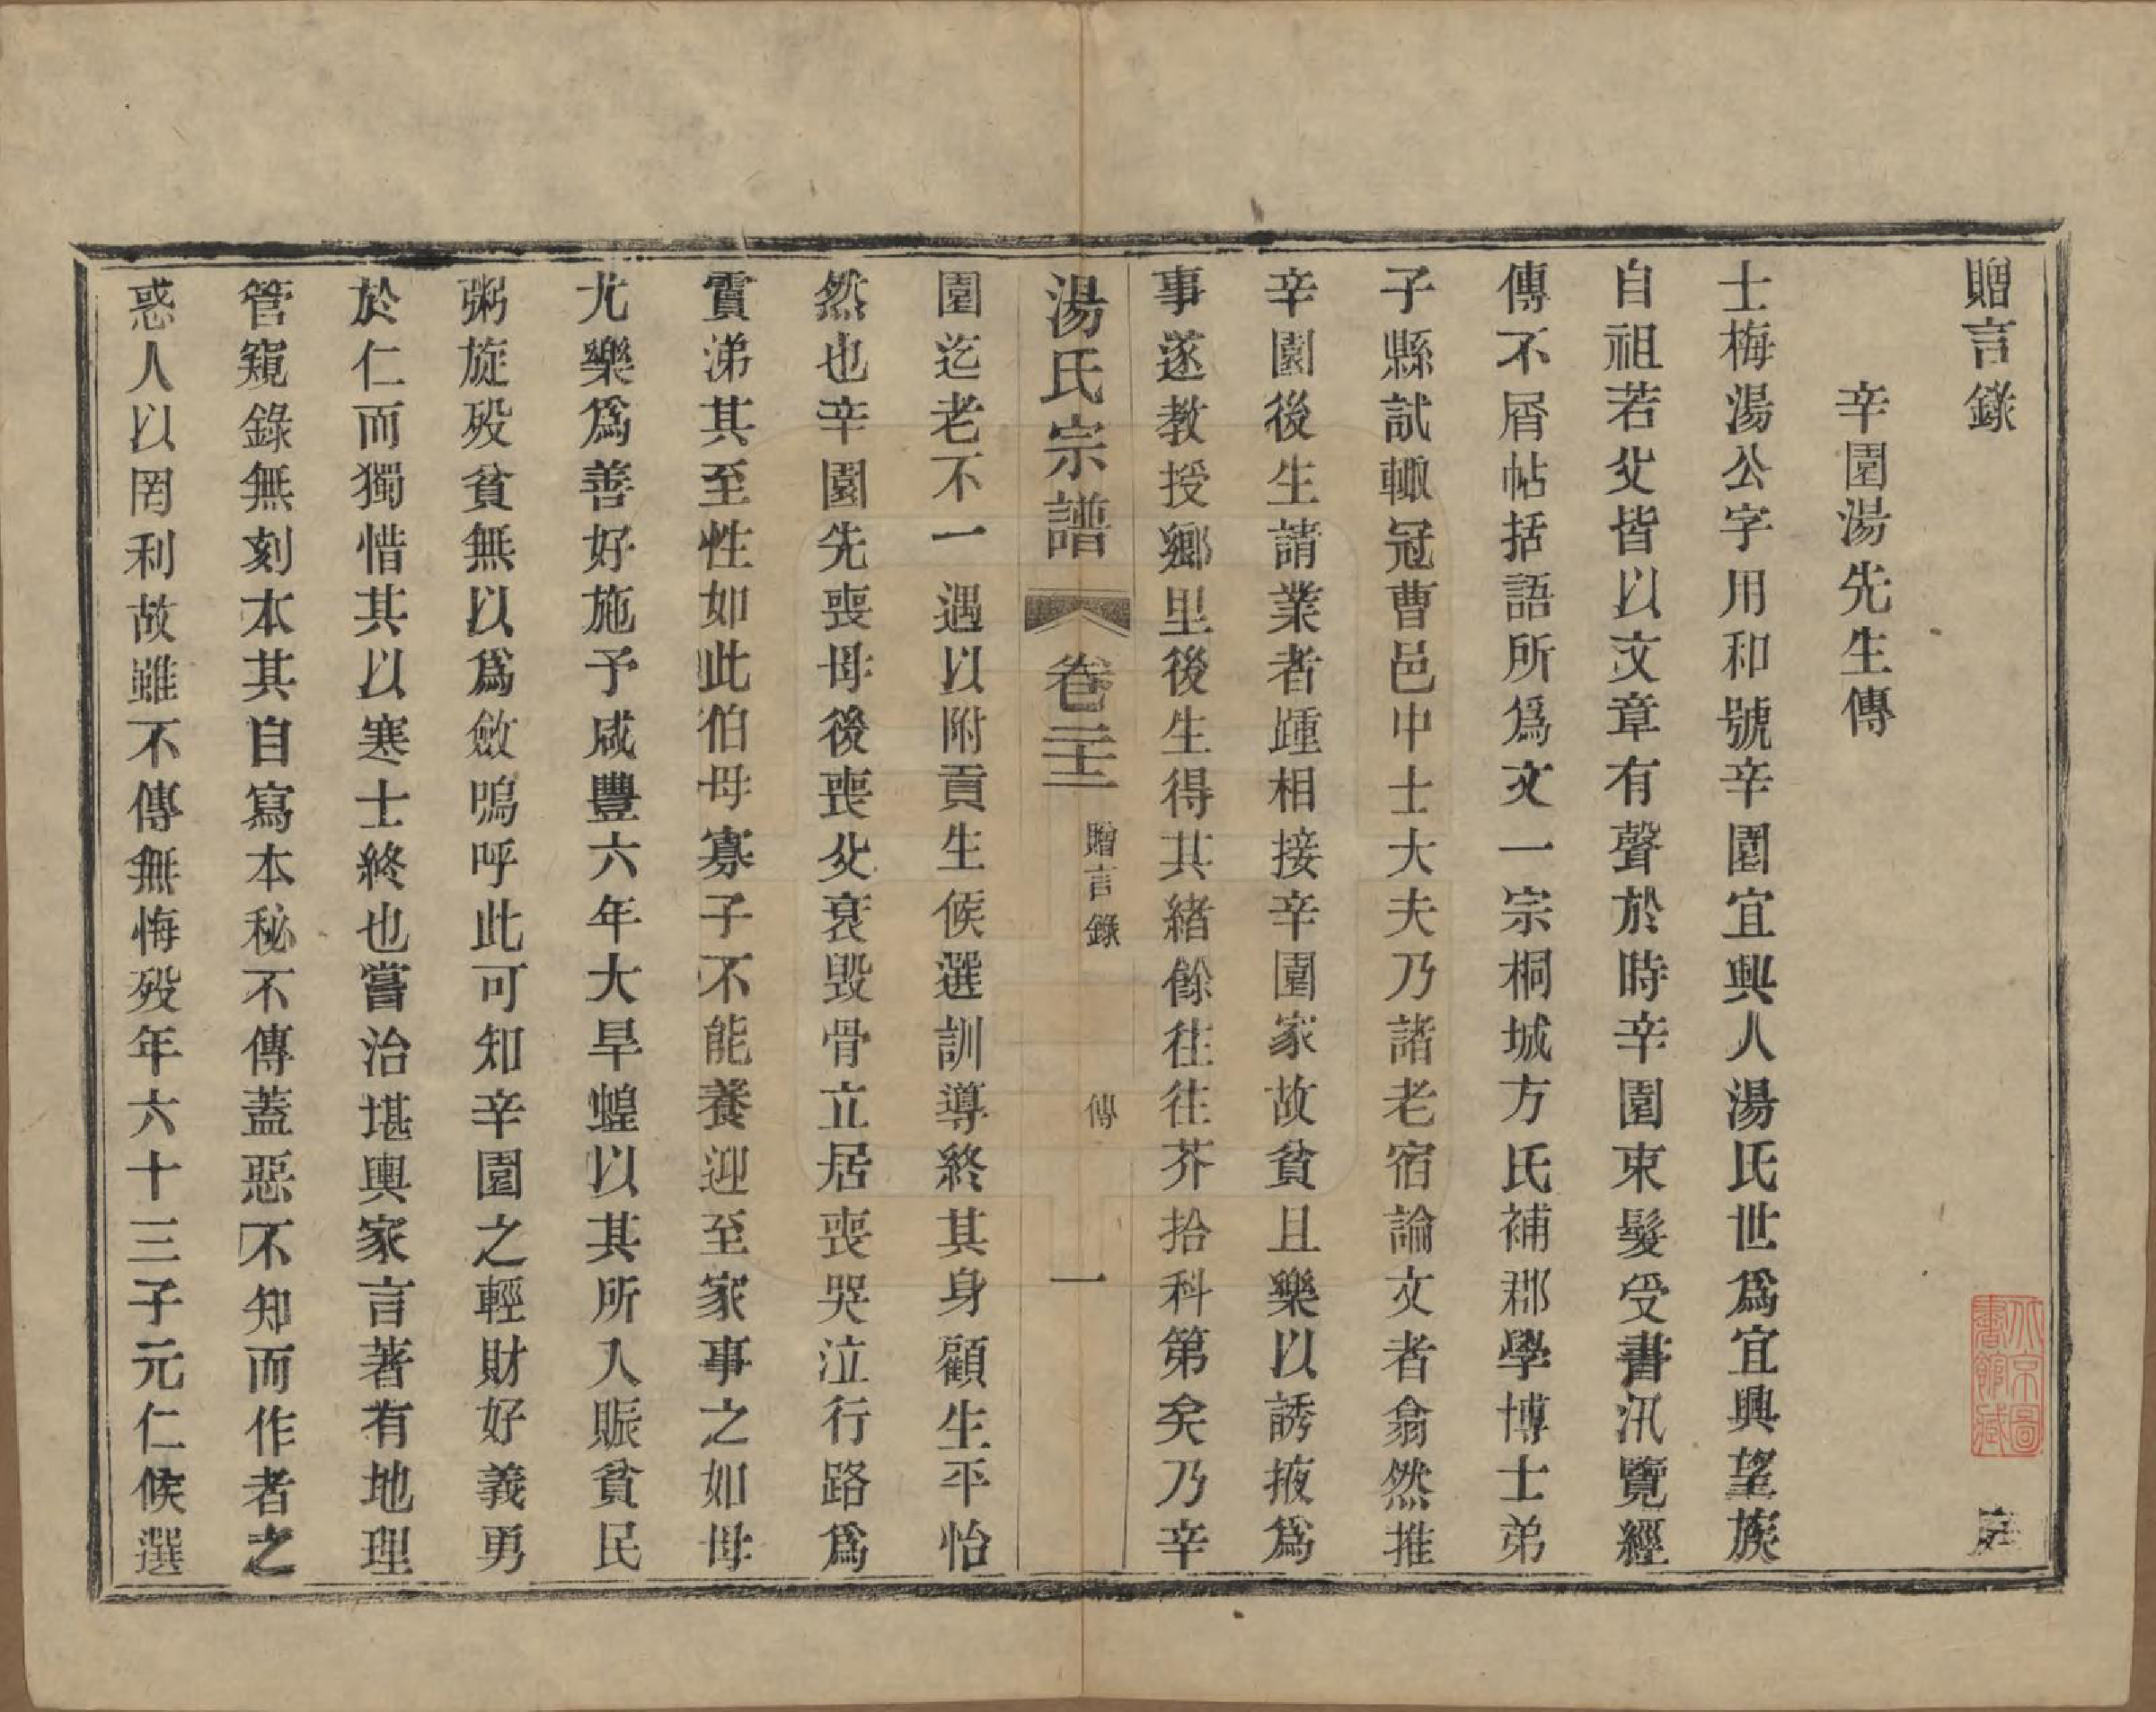 贈言錄
庭
北京圖書館藏
辛園湯先生傳
士梅湯公字用和號辛園宜興人湯氏世爲宜興望族
自祖若父皆以文章有聲於時辛園束髮受書汛覽經
傳不屑帖括語所爲文一宗桐城方氏補郡學博士弟
子縣試輙冠曹邑中士大夫乃諸老宿論文者翕然推
辛園後生請業者踵相接辛園家故貧且樂以誘掖爲
事遂教授鄉里後生得其緒餘往往芥拾科第矣乃辛
湯氏宗譜 卷二十二 贈言錄 傳 一
園迄老不一遇以附貢生候選訓導終其身顧生平怡
然也辛園先喪母後喪父哀毀骨立居喪哭泣行路爲
霣涕其至性如此伯母寡子不能養迎至家事之如母
尤樂爲善好施予咸豐六年大旱蝗以其所入賑貧民
粥旋歿貧無以爲斂嗚呼此可知辛園之輕財好義勇
於仁而獨惜其以寒士終也嘗治堪輿家言著有地理
管窺錄無刻本其自寫本秘不傳蓋惡不知而作者之
惑人以罔利故雖不傳無悔歿年六十三子元仁候選